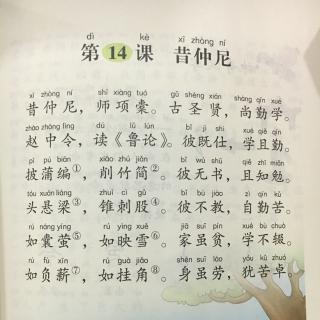 dì kè xī zhòng ní
第14课 昔仲尼
xī zhòng ní shī xiàng tuó gǔ shèng xián shàng qín xué
昔仲尼，师项橐。古圣贤，尚勤学。
zhào zhōng lìng dú lǔ lún bǐ jì shì xué qiě qín
赵中令，读《鲁论》。彼既仕，学且勤。
pī pú biān xiāo zhú jiǎn bǐ wú shū qiě zhī miǎn
披蒲编①，削竹简②。彼无书，且知勉。
tóu xuán liáng zhuī cì gǔ bǐ bú jiào zì qín kǔ
头悬梁③，锥刺股④。彼不教，自勤苦。
rú náng yíng rú yìng xuě jiā suī pín xué bú chuò
如囊萤⑤，如映雪⑥。家虽贫，学不辍。
rú fù xīn rú guà jiǎo shēn suī láo yóu kǔ zhuó
如负薪⑦，如挂角⑧。身虽劳，犹苦卓。